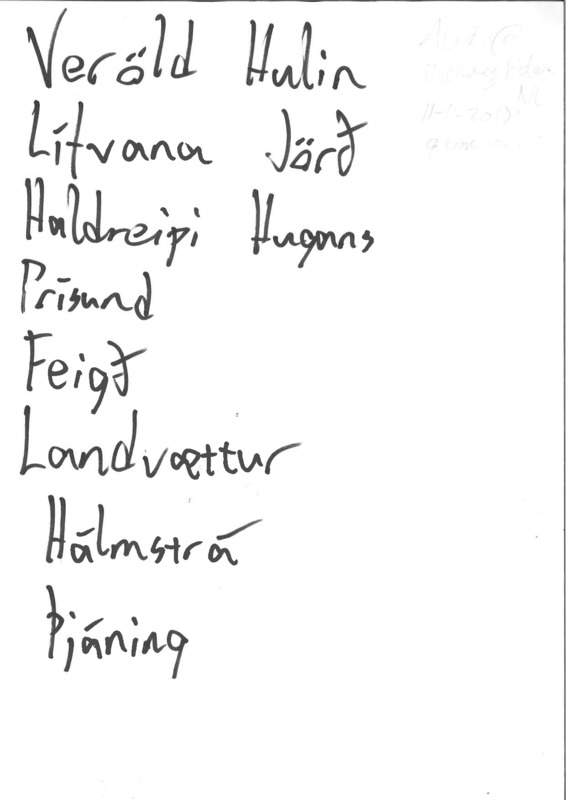 Veröld Hulin
Lífvana Jörð
Haldreipi Hugans
Prísund
Feigð
Landvættur
Hálmstrá
Þjáning